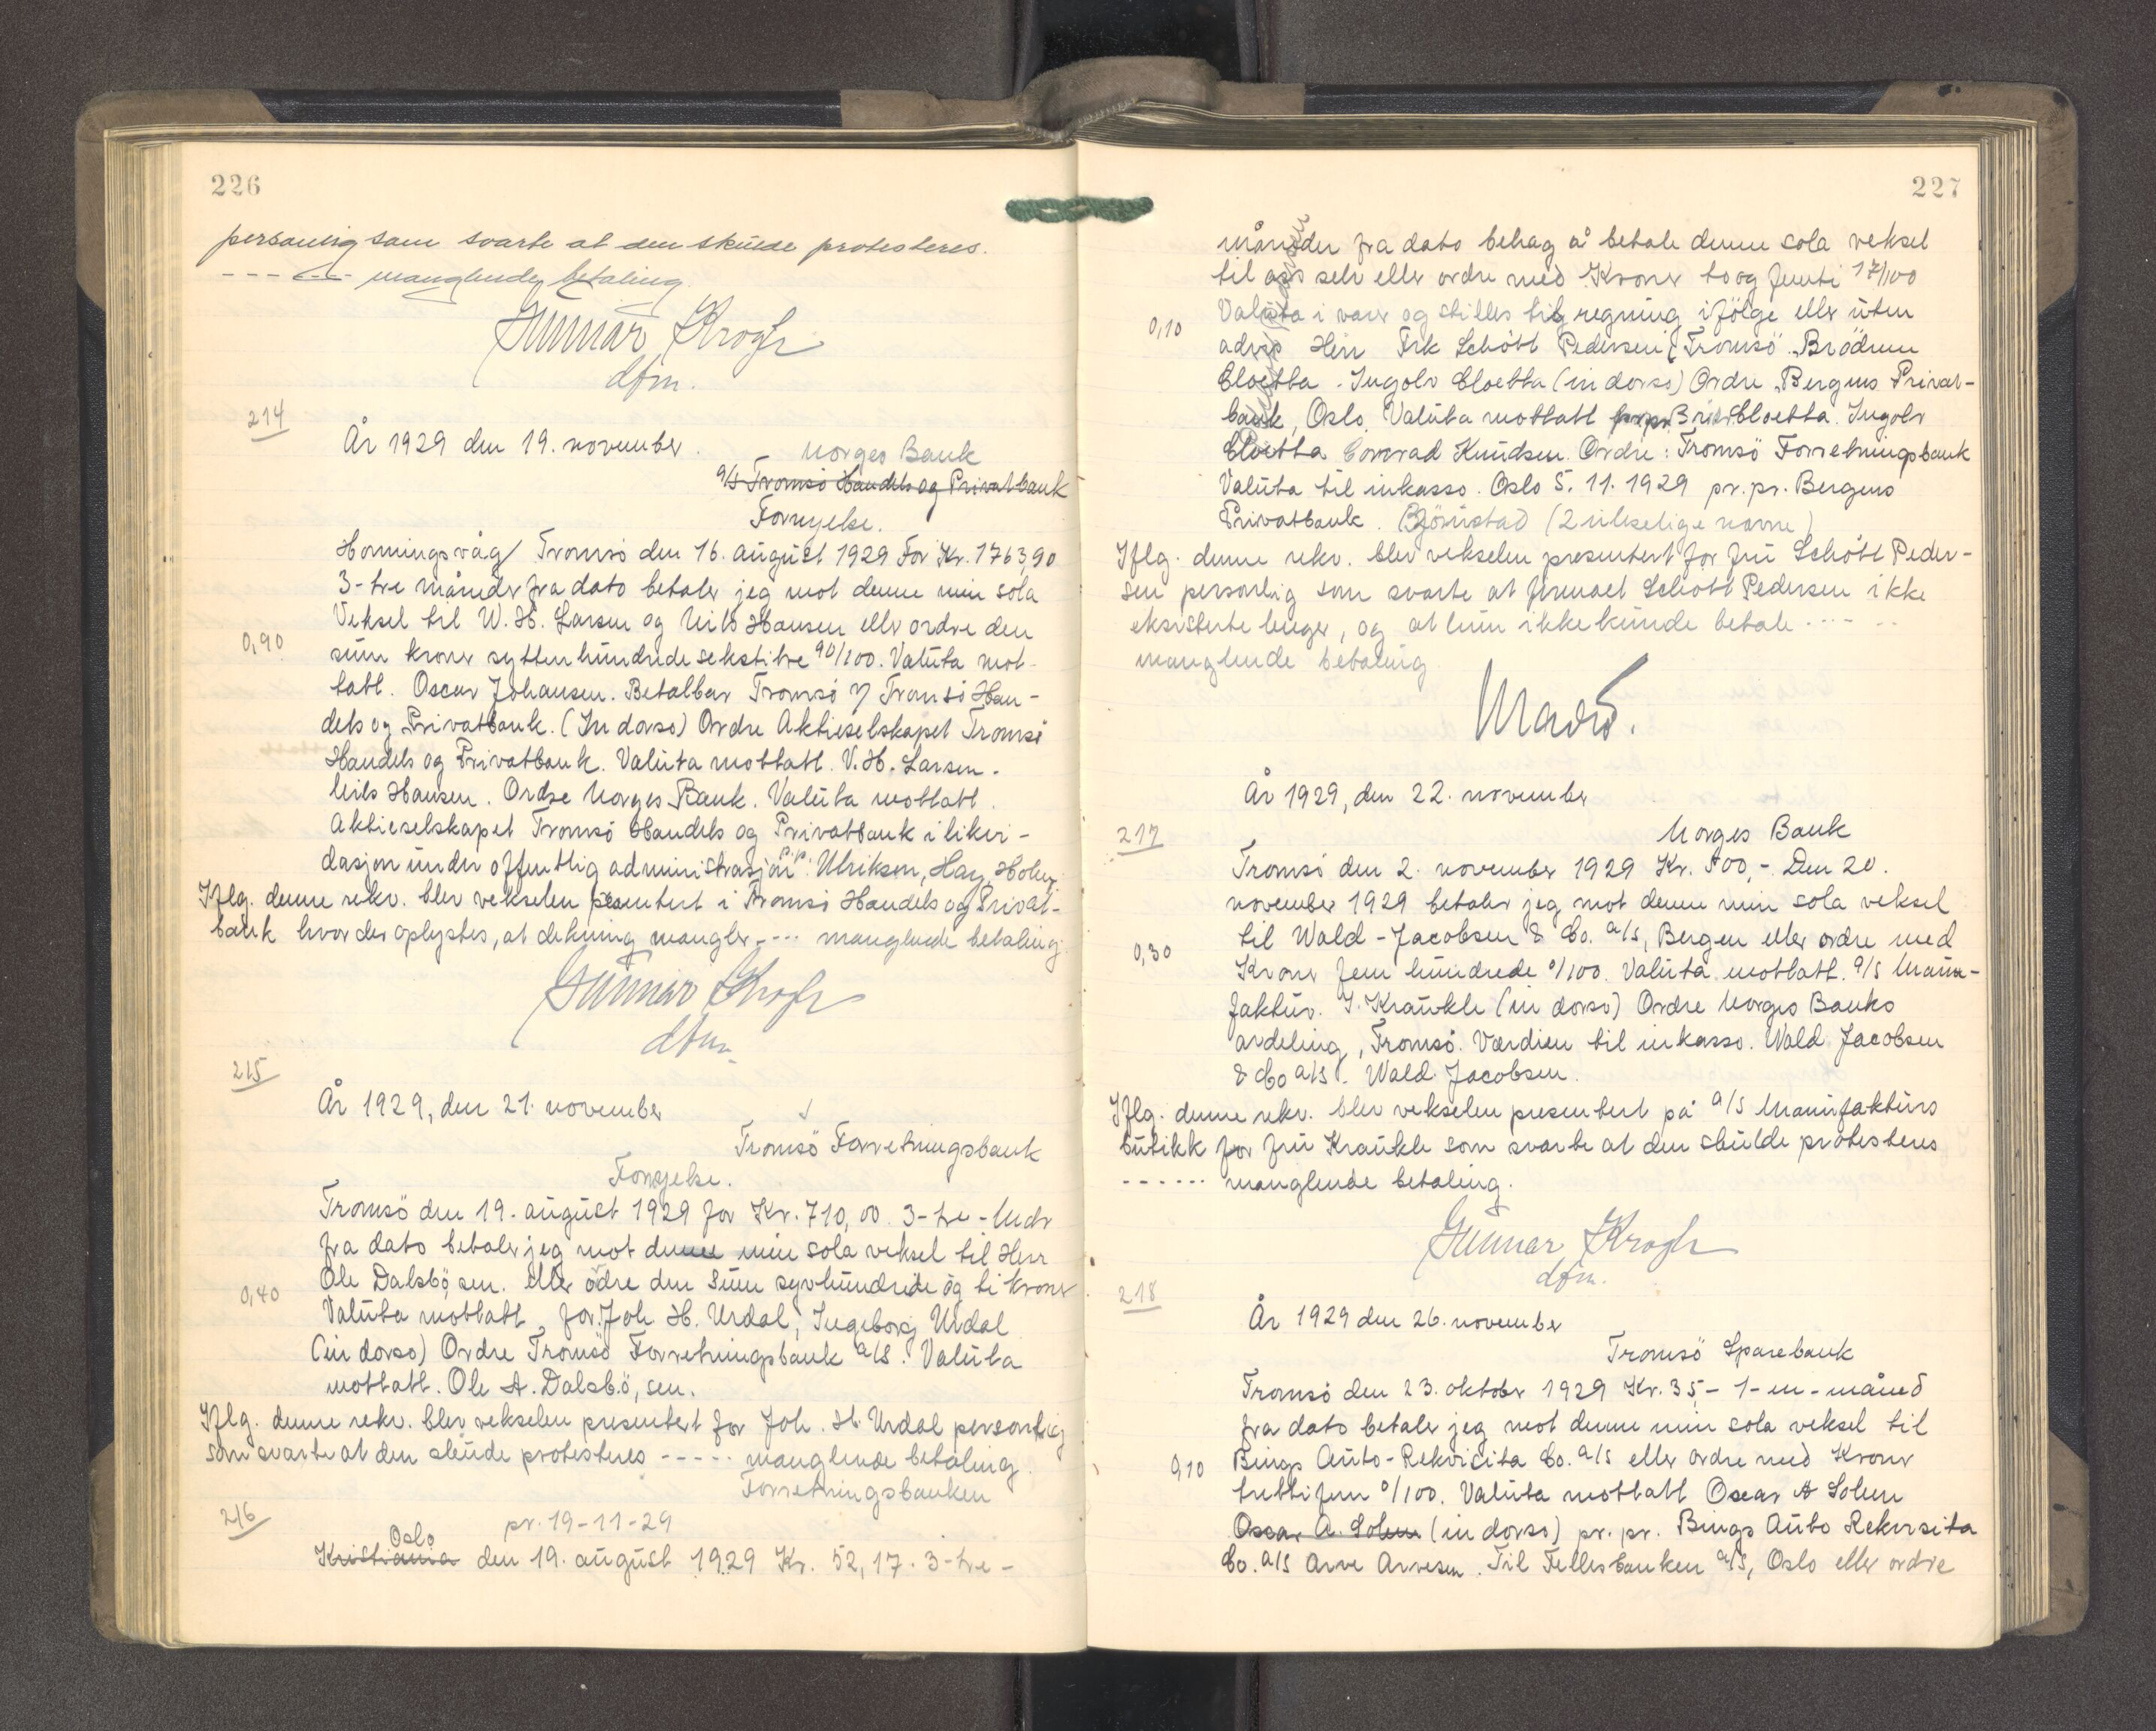 226
personlig som svarte at den skulde protesteres.
------ manglende betaling.
Gunnar Krogh
dfm.
214
År 1929 den 19. november.
Norges Bank
a/s Tromsö Handels og Privatbank
Fornyelse.
Honningsvåg/ Tromsö den 16. august 1929 For Kr. 1763,90
3-tre måneder fra dato betaler jeg mot denne min sola
Veksel til W. H. Larsen og Nils Hansen eller ordre den
0,90
sum kroner sytten hundrede sekstitre 90/100. Valuta mot-
tatt. Oscar Johansen. Betalbar Tromsö i/ Tromsö Han-
dels og Privatbank. (In dorso) Ordre Aktieselskapet Tromsö
Handels og Privatbank. Valuta mottatt. V. H. Larsen.
Nils Hansen. Ordre Norges Bank. Valuta mottatt.
Aktieselskapet Tromsö Handels og Privatbank i likvi-
dasjon under offentlig administrasjon p.p. Ulriksen, Hay, Holm.
Iflg. denne rekv. blev vekselen presentert i Tromsö Handels og Privat-
bank hvor der oplystes, at dekning mangler ---- manglende betaling.
Gunnar Krogh
dfm.
215
År 1929, den 21. november
Tromsö Forretningsbank
Fornyelse.
Tromsö den 19. august 1929 for Kr. 710,00 3-tre-Mndr
fra dato betaler jeg mot denne min sola veksel til Herr
Ole Dalsbö, sen. eller ordre den sum syvhundrede og ti kroner
0,40
Valuta mottatt, for Joh. H. Urdal, Ingeborg Urdal
(in dorso) Ordre Tromsö Forretningsbank a/s. Valuta
mottatt. Ole A. Dalsbö, sen.
Iflg. denne rekv. blev vekselen presentert for Joh. H. Urdal personlig
som svarte at den skulde protesteres ----- manglende betaling.
Forretningsbanken
216
pr. 19-11-29
Oslo
Kristiania den 19. august 1929 Kr. 52,17. 3-tre-
227
måneder fra dato behag å betale denne sola veksel
til oss selv eller ordre med Kroner to og femti 17/100
Valuta i varer og stilles til regning ifölge eller uten
0,10
advis Herr Frk Schött Pedersen, Tromsö. Brödrene
Cloetta. Ingolv Cloetta (in dorso) Ordre Bergens Privat-
bank, Oslo. Valuta mottatt pr. pr. Brödr. Cloetta. Ingolv
Cloetta Conrad Knudsen. Ordre: Tromsö Forretningsbank
Valuta til inkasso. Oslo 5. 11. 1929 pr. pr. Bergens
Privatbank. Björnstad (2 ulæselige navne)
Iflg. denne rekv. blev vekselen presentert for fru Schött Peder-
sen personlig som svarte at firmaet Schött Pedersen ikke
eksisterte lenger, og at hun ikke kunde betale -----
manglende betaling.
År 1929, den 22. november
217
Norges Bank
Tromsö den 2. november 1929 Kr. 500,-. Den 20.
november 1929 betaler jeg mot denne min sola veksel
til Wald-Jacobsen & Co. a/s, Bergen eller ordre med
0,30
Kroner fem hundrede 0/100. Valuta mottatt. a/s Manu-
faktur. J. Kraukle (in dorso) Ordre Norges Banks
avdeling, Tromsö. Værdien til inkasso. Wald Jacobsen
& Co a/s. Wald Jacobsen.
Iflg. denne rekv. blev vekselen presentert på a/s Manufakturs
butikk for fru Kraukle som svarte at den skulde protesteres
------ manglende betaling.
Gunnar Krogh
dfm.
218
År 1929 den 26. november
Tromsö Sparebank
Tromsö den 23. oktober 1929 Kr. 35,- 1-en-måned
fra dato betaler jeg mot denne min sola veksel til
0,10
Bings Auto-Rekvisita Co. a/s eller ordre med Kroner
trettifem 0/100. Valuta mottatt Oscar A Solem
Oscar A. Solem (in dorso) pr. pr. Bings Auto Rekvisita
Co. a/s Arve Arvesen. Til Fellesbanken a/s, Oslo eller ordre